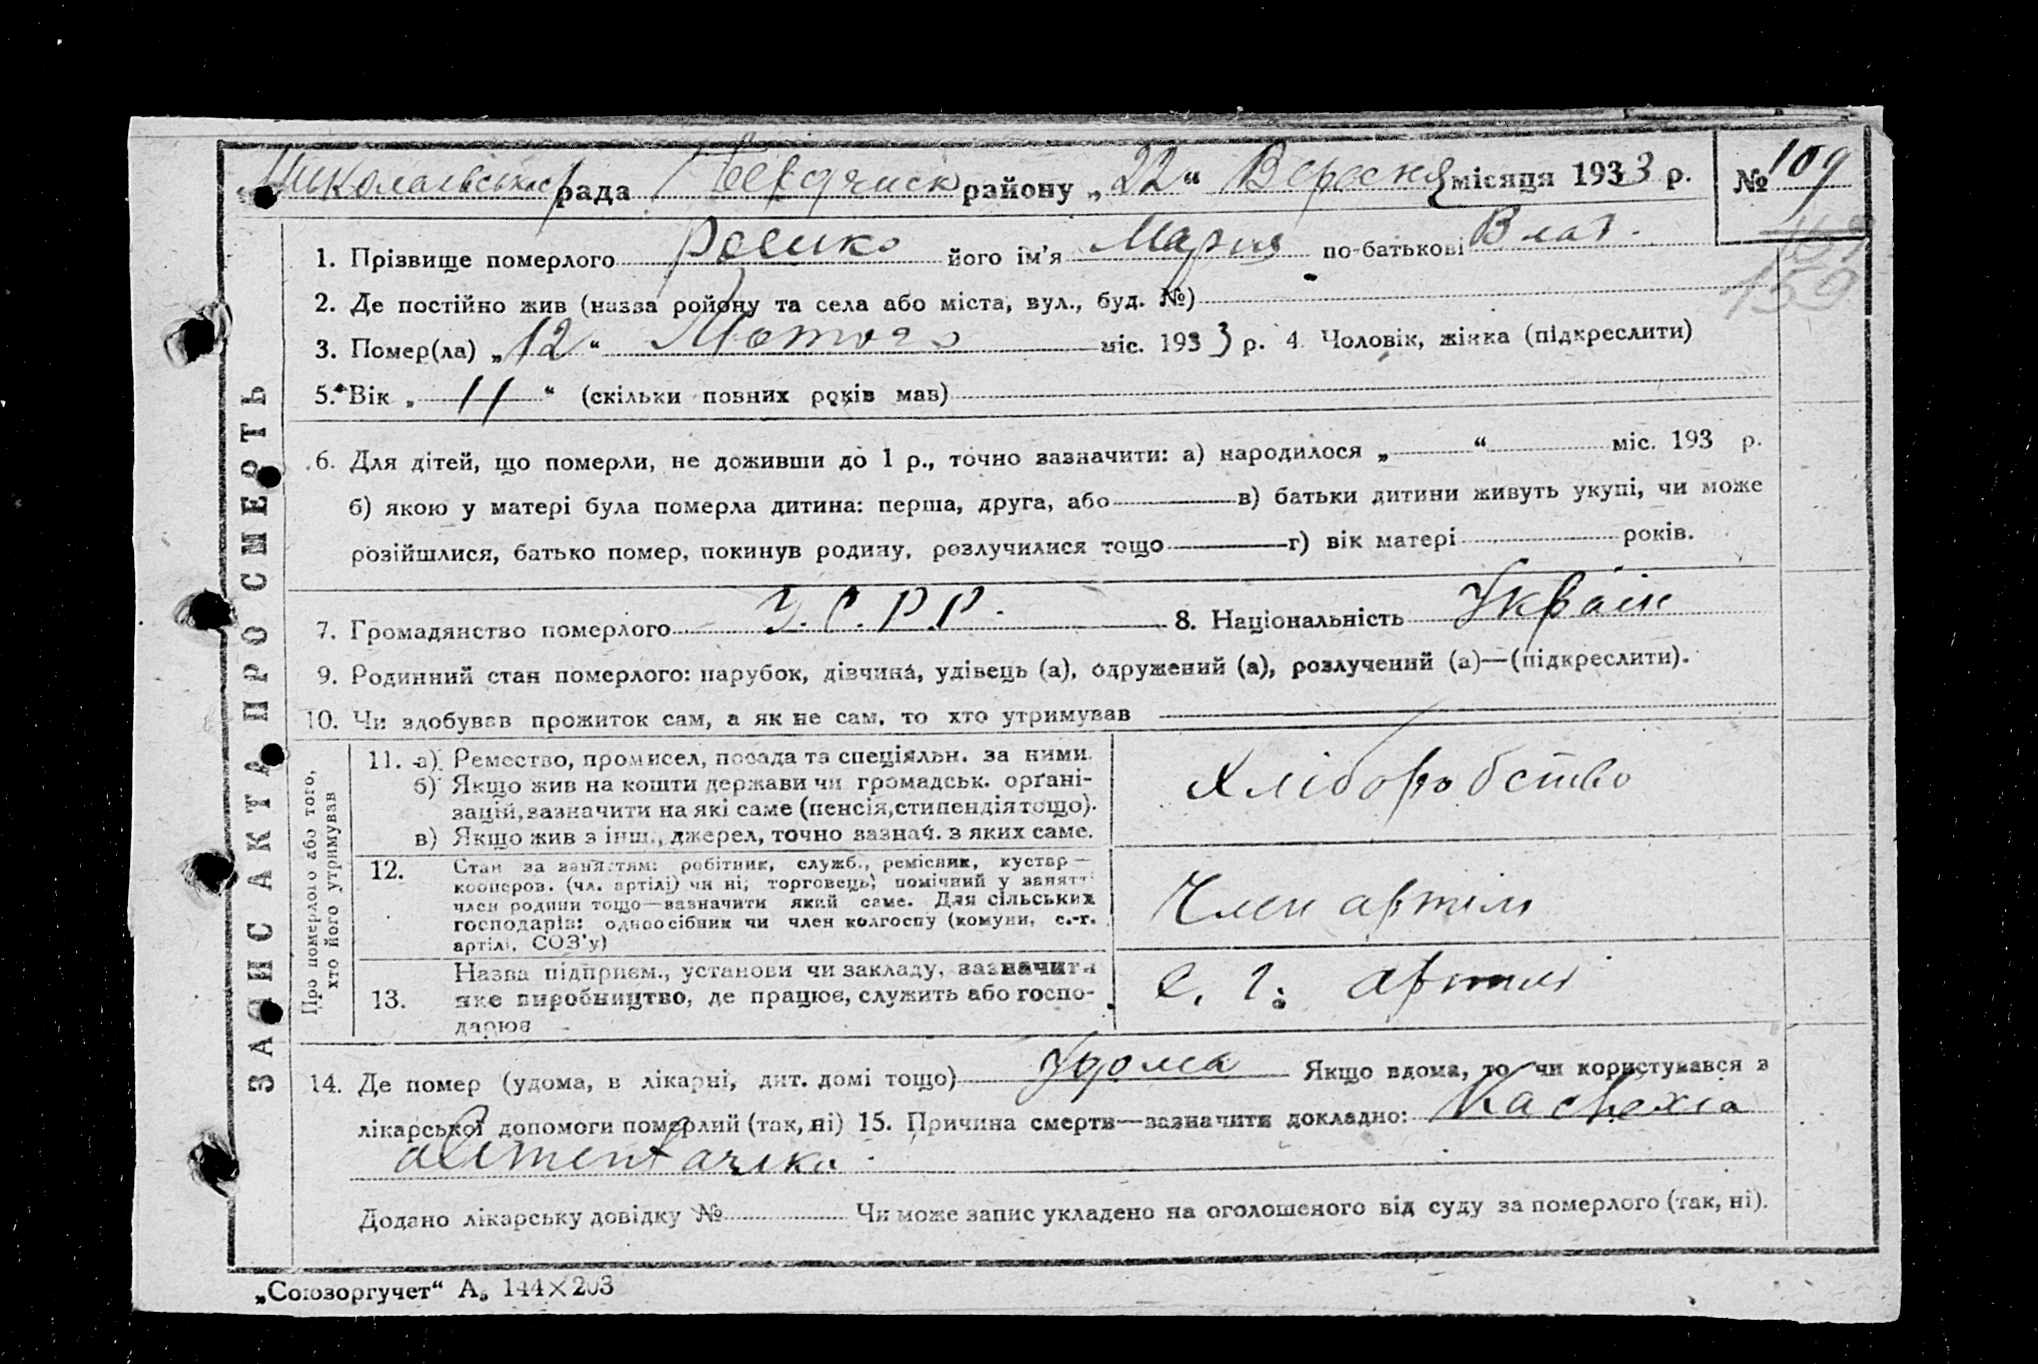 Миколаївська рада Бердичиск району „22“ Вересня місяця 1933 р. № 109
159
159
1. Прізвище померлого його ім'я Мария по-батькові Влад.
2. Де постійно жив (назва району та села або міста, вул., буд. №)
3. Помер(ла) „12“ Лютого міс. 1933 р. 4. Чоловік, жінка (підкреслити)
5. Вік „11“ (скільки повних років мав)
6. Для дітей, що померли, не доживши до 1 р., точно зазначити: а) народилося „ “ міс. 193 р.
б) якою у матері була померла дитина: перша, друга, або в) батьки дитини живуть укупі, чи може
розійшлися, батько помер, покинув родину, розлучилися тощо г) вік матері років.
7. Громадянство померлого У.С.Р.Р. 8. Національність Україн
9. Родинний стан померлого: парубок, дівчина, удівець (а), одружений (а), розлучений (а)—(підкреслити).
10. Чи здобував прожиток сам, а як не сам, то хто утримував
ЗАПИС АКТА ПРО СМЕРТЬ
Про померлого або того,
хто його утримував
11. а) Ремество, промисел, посада та спеціяльн. за ними.
б) Якщо жив на кошти держави чи громадськ. органі-
зацій, зазначити на які саме (пенсія, стипендія тощо).
в) Якщо жив з інш., джерел, точно зазнач. з яких саме.
Хліборобство
12. Стан за заняттям: робітник, служб., ремісник, кустар—
кооперов. (чл. артілі) чи ні, торговець, помічний у занятті
член родини тощо—зазначити який саме. Для сільських
господарів: одноосібник чи член колгоспу (комуни, с.-г.
артілі, СОЗ'у)
Член артілі
13. Назва підприєм., установи чи закладу, зазначити
яке виробництво, де працює, служить або госпо-
дарює
С. г. артілі
14. Де помер (удома, в лікарні, дит. домі тощо) Удома Якщо вдома, то чи користувався з
лікарської допомоги померлий (так, ні) 15. Причина смерти—зазначити докладно: Kachexia
alimentarika
Додано лікарську довідку № Чи може запис укладено на оголошеного від суду за померлого (так, ні).
„Союзоргучет“ А₅ 144×203